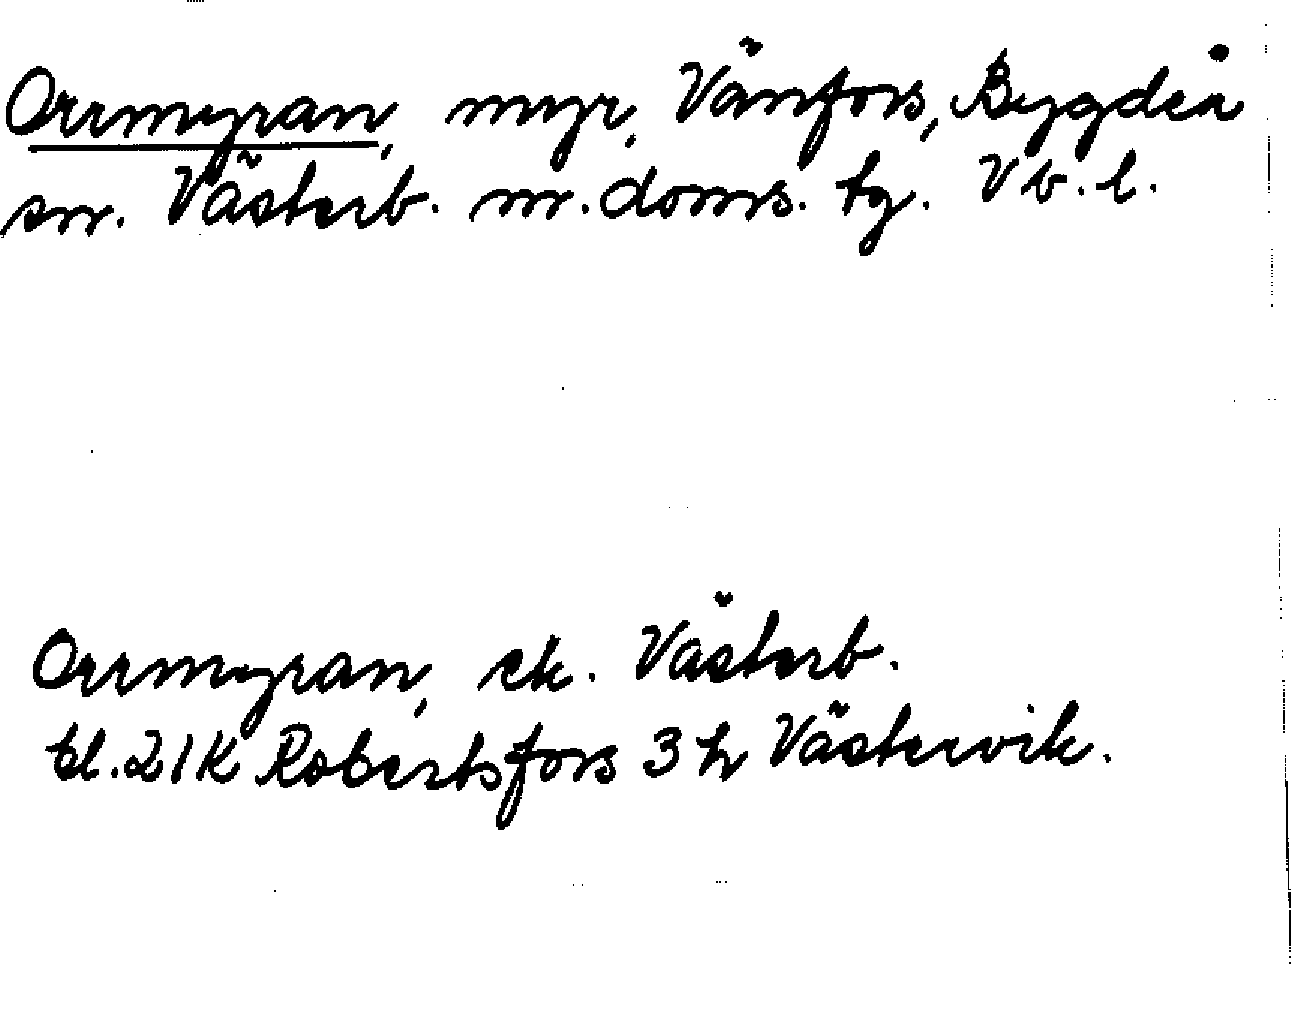 Orrmyran, myr, Vänfors, Bygdeå
sn. Västerb. n. doms. tg. Vb. l.
Orrmyran, ek. Västerb.
bl. 21K Robertsfors 3 h Västervik.